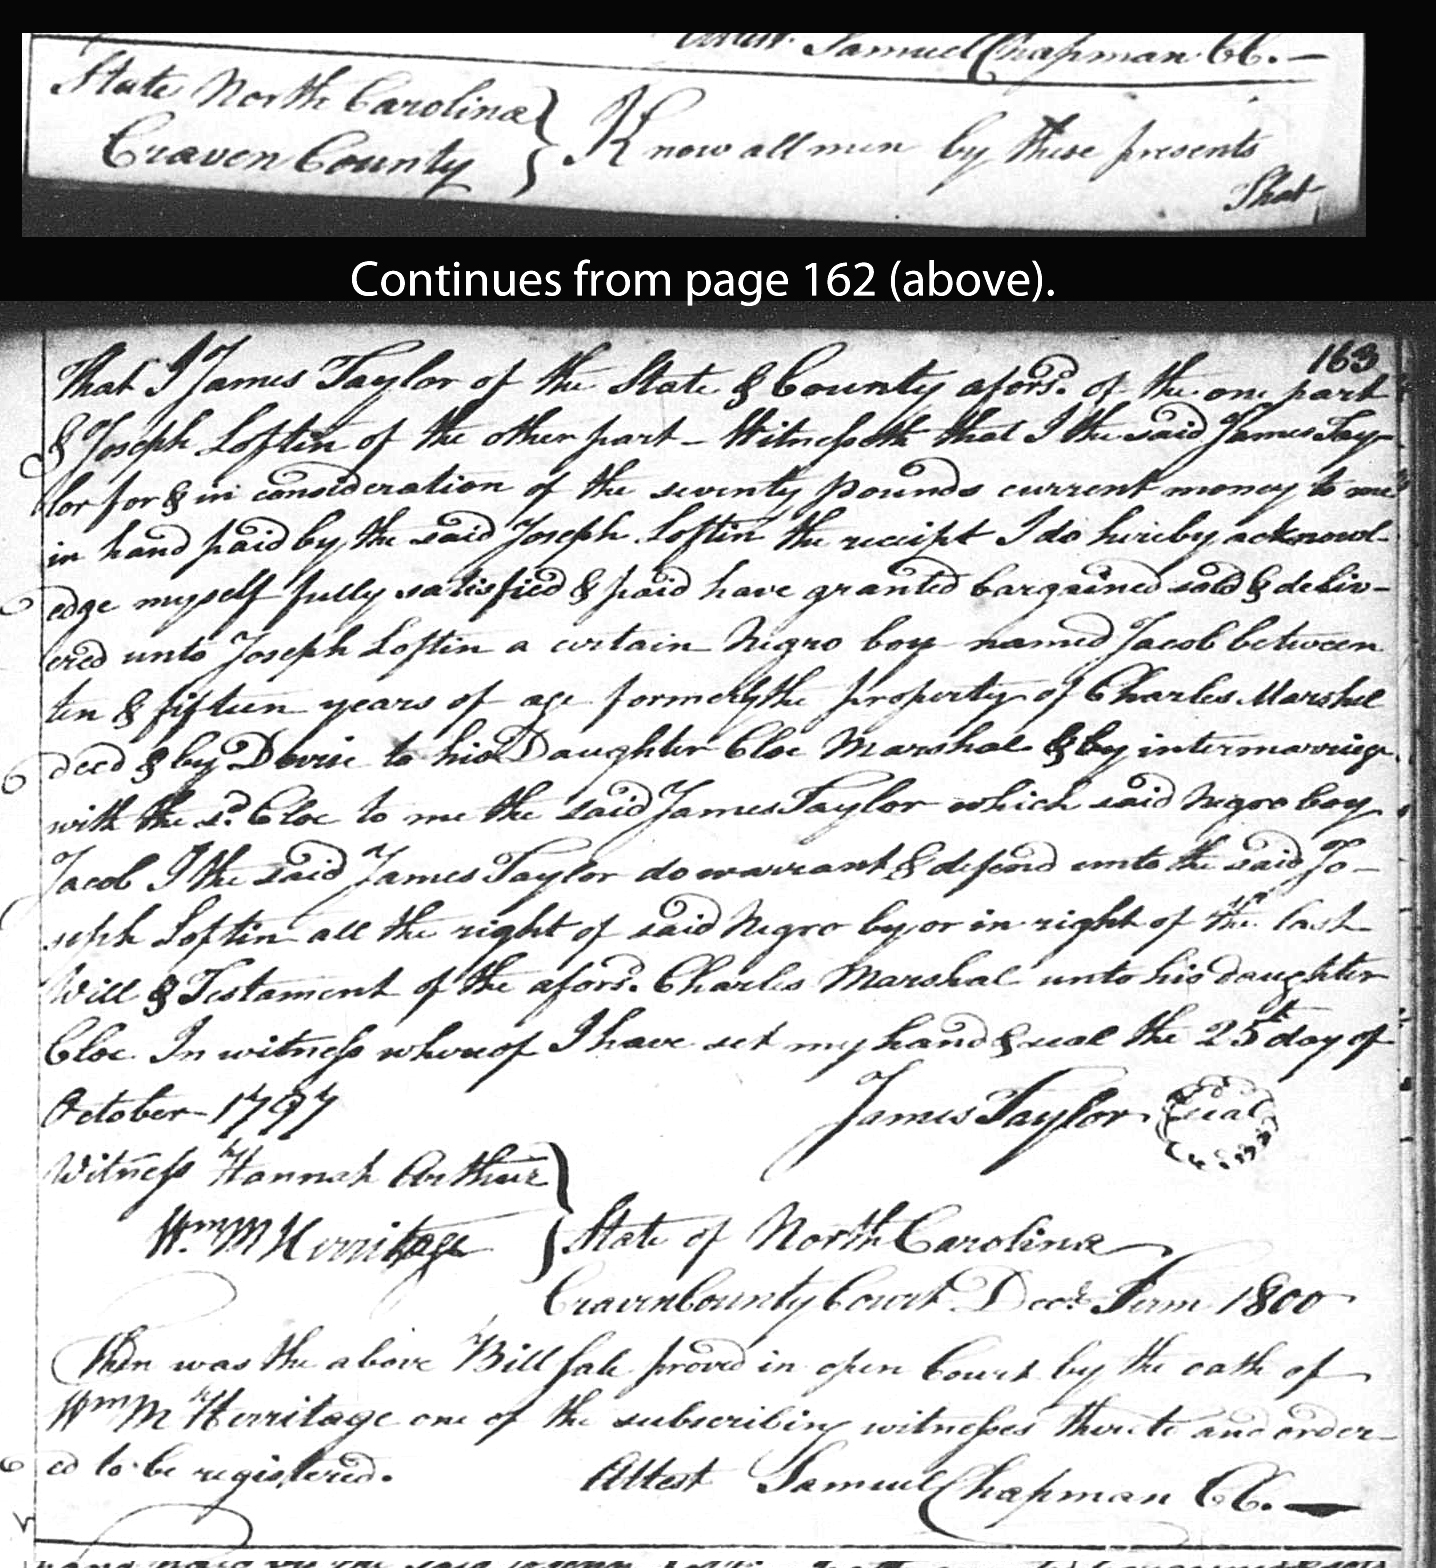 Attest Samuel Chapman CC.—
State North Carolina } Know all men by these presents
Craven County }
That
Continues from page 162 (above).
163
That I James Taylor of the State & County afors.d of the one part
& Joseph Loftin of the other part – Witnesseth that I the said James Tay-
lor for & in consideration of the seventy pounds current money to me
in hand paid by the said Joseph Loftin the receipt I do hereby acknowl-
edge myself fully satisfied & paid have granted bargained sold & deliv-
ered unto Joseph Loftin a certain Negro boy named Jacob between
ten & fifteen years of age formerly the property of Charles Marshel
decd & by Devise to his Daughter Cloe Marshal & by intermarriage
with the s.d Cloe to me the said James Taylor which said Negro boy
Jacob I the said James Taylor do warrant & defend unto the said Jo-
seph Loftin all the right of said Negro by or in right of the last
Will & Testament of the afors.d Charles Marshal unto his daughter
Cloe. In witness whereof I have set my hand & seal the 25th day of
October 1797
James Taylor Seal
Witness Hannah Arthur }
Wm M Herritage } State of North Carolina
Craven County Court Decr. Term 1800
Then was the above Bill sale proved in open Court by the oath of
Wm M Herritage one of the subscribing witnesses thereto and order-
ed to be registered.
Attest Samuel Chapman CC.—